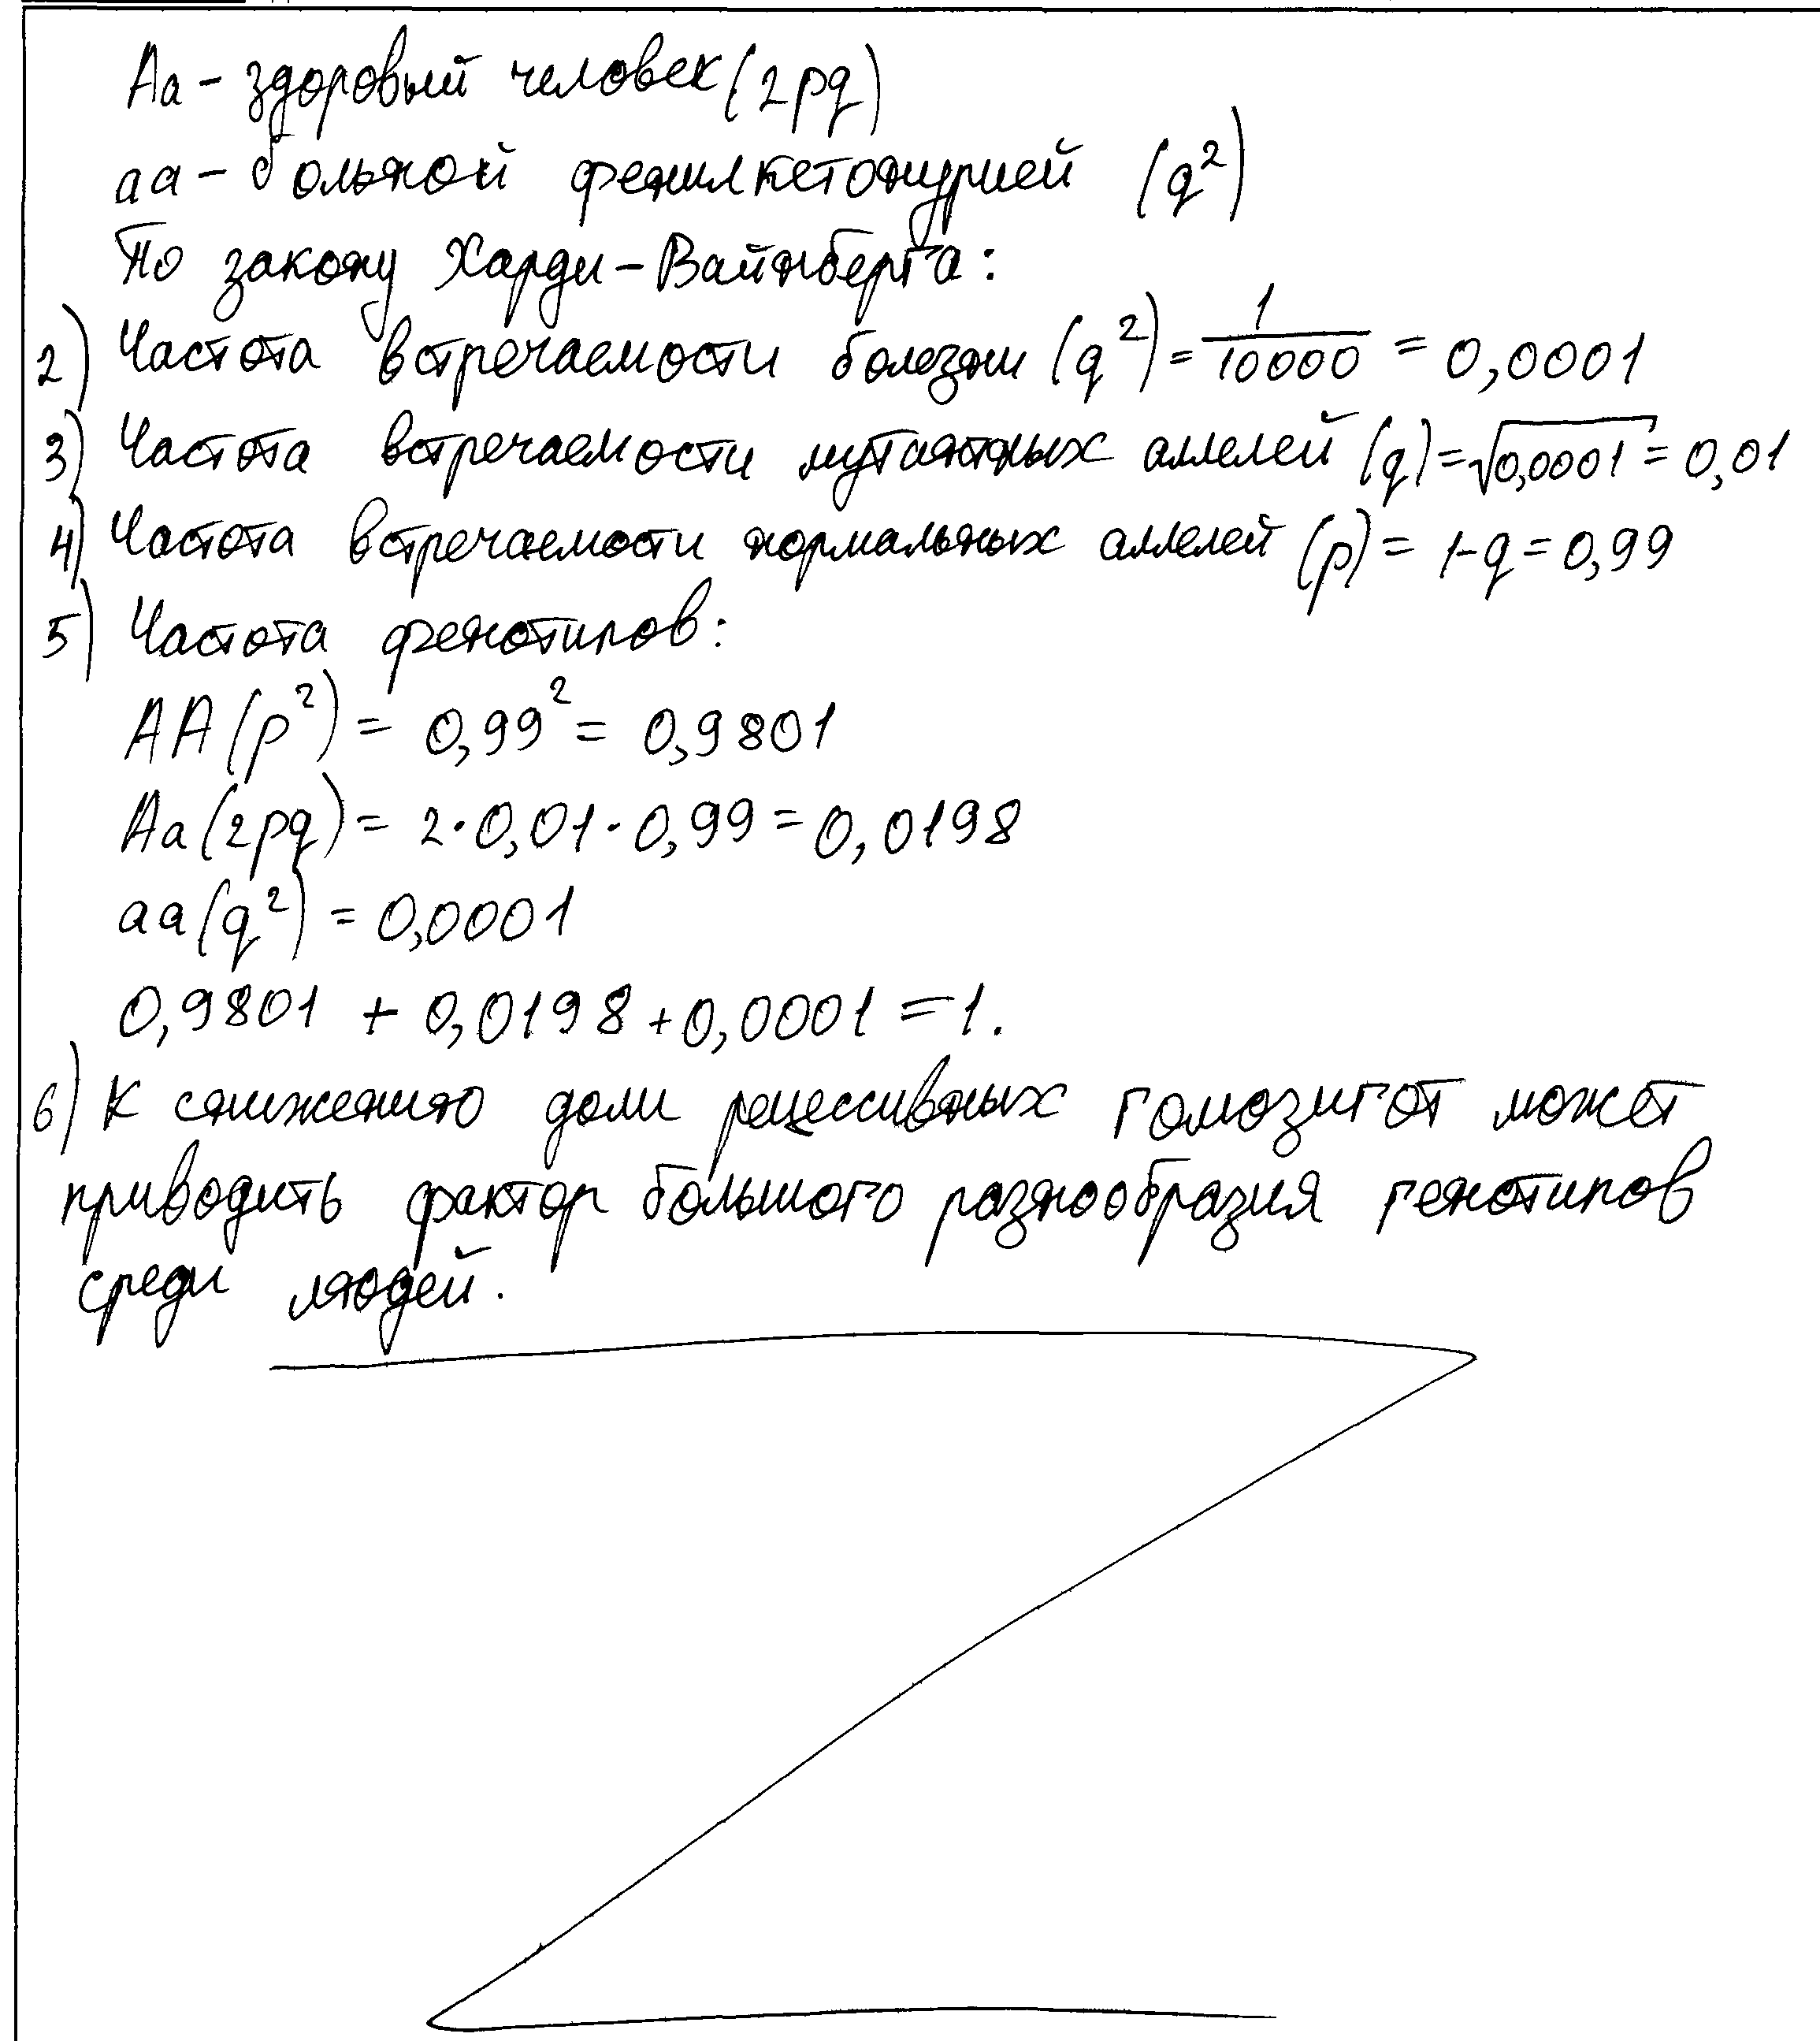 Аа - здоровый человек (2pq)
аа - больной фенилкетонурией (q²)
По закону Харди - Вайнберга:
2) Частота встречаемости болезни (q²) = 1/10000 = 0,0001
3) Частота встречаемости мутантных аллелей (q) = √0,0001 = 0,01
4) Частота встречаемости нормальных аллелей (p) = 1-q = 0,99
5) Частота фенотипов:
АА (p²) = 0,99² = 0,9801
Аа (2pq) = 2·0,01·0,99 = 0,0198
аа (q²) = 0,0001
0,9801 + 0,0198 + 0,0001 = 1.
6) К снижению доли рецессивных гомозигот может
приводить фактор большого разнообразия генотипов
среди людей.